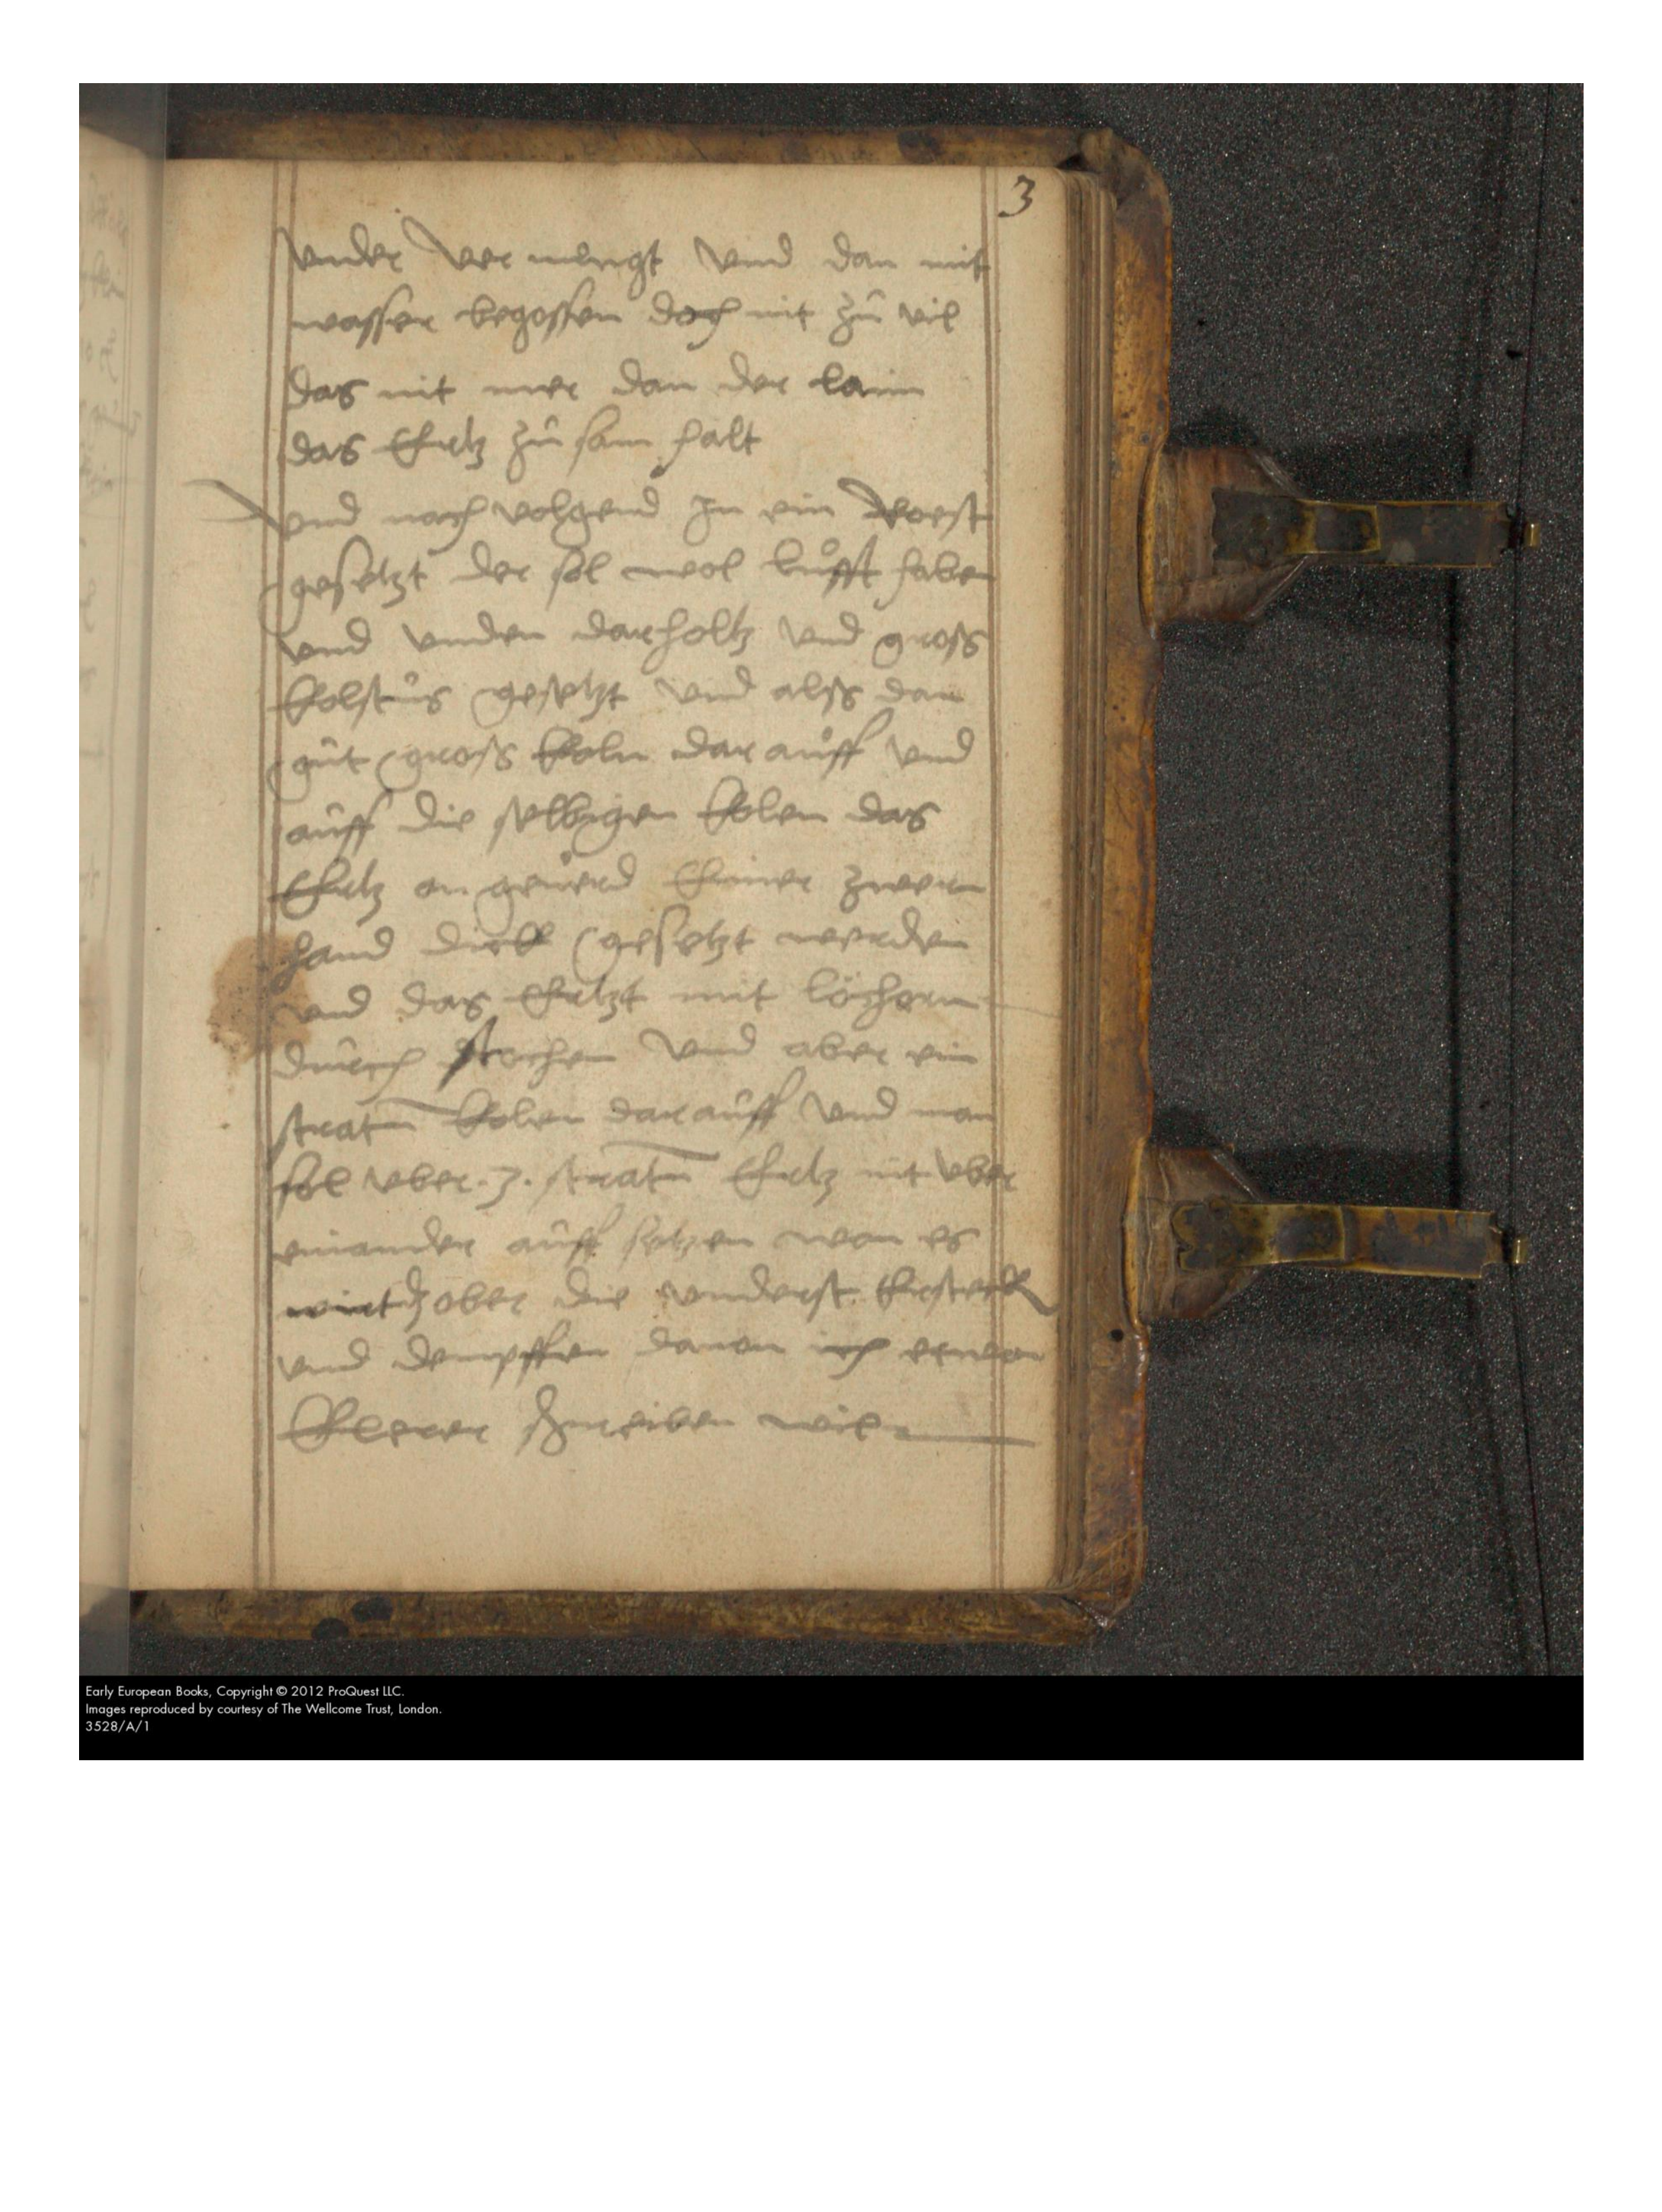 3
vnder ver mengt vnd dan mit
wasser begossen doch nit zů vil
das nit mer dan der laim
das Ertz zů sam halt
vnd nach volgend In ein Roest
gesetzt der sol wol lůfft haben
vnd vnden dar holtz vnd gross
gesetzt vnd alss dan
gůt gross koln dar aůff vnd
aůff die selbigen kolen das
Ertz on geuerd Einer zwern
hand dick gesetzt werden
vnd das Ertzt mit löchern
důrch stochen vnd aber ein
stratū kolen dar aůff vnd man
sol vber .3. stratū Ertz nit vber
einander aůff setzen wan es
wirt ober die vnderst Ersteck
vnd dempffen dauon ich
klerer schreiben wil
Early European Books, Copyright © 2012 ProQuest LLC.
Images reproduced by courtesy of The Wellcome Trust, London.
3528/A/1